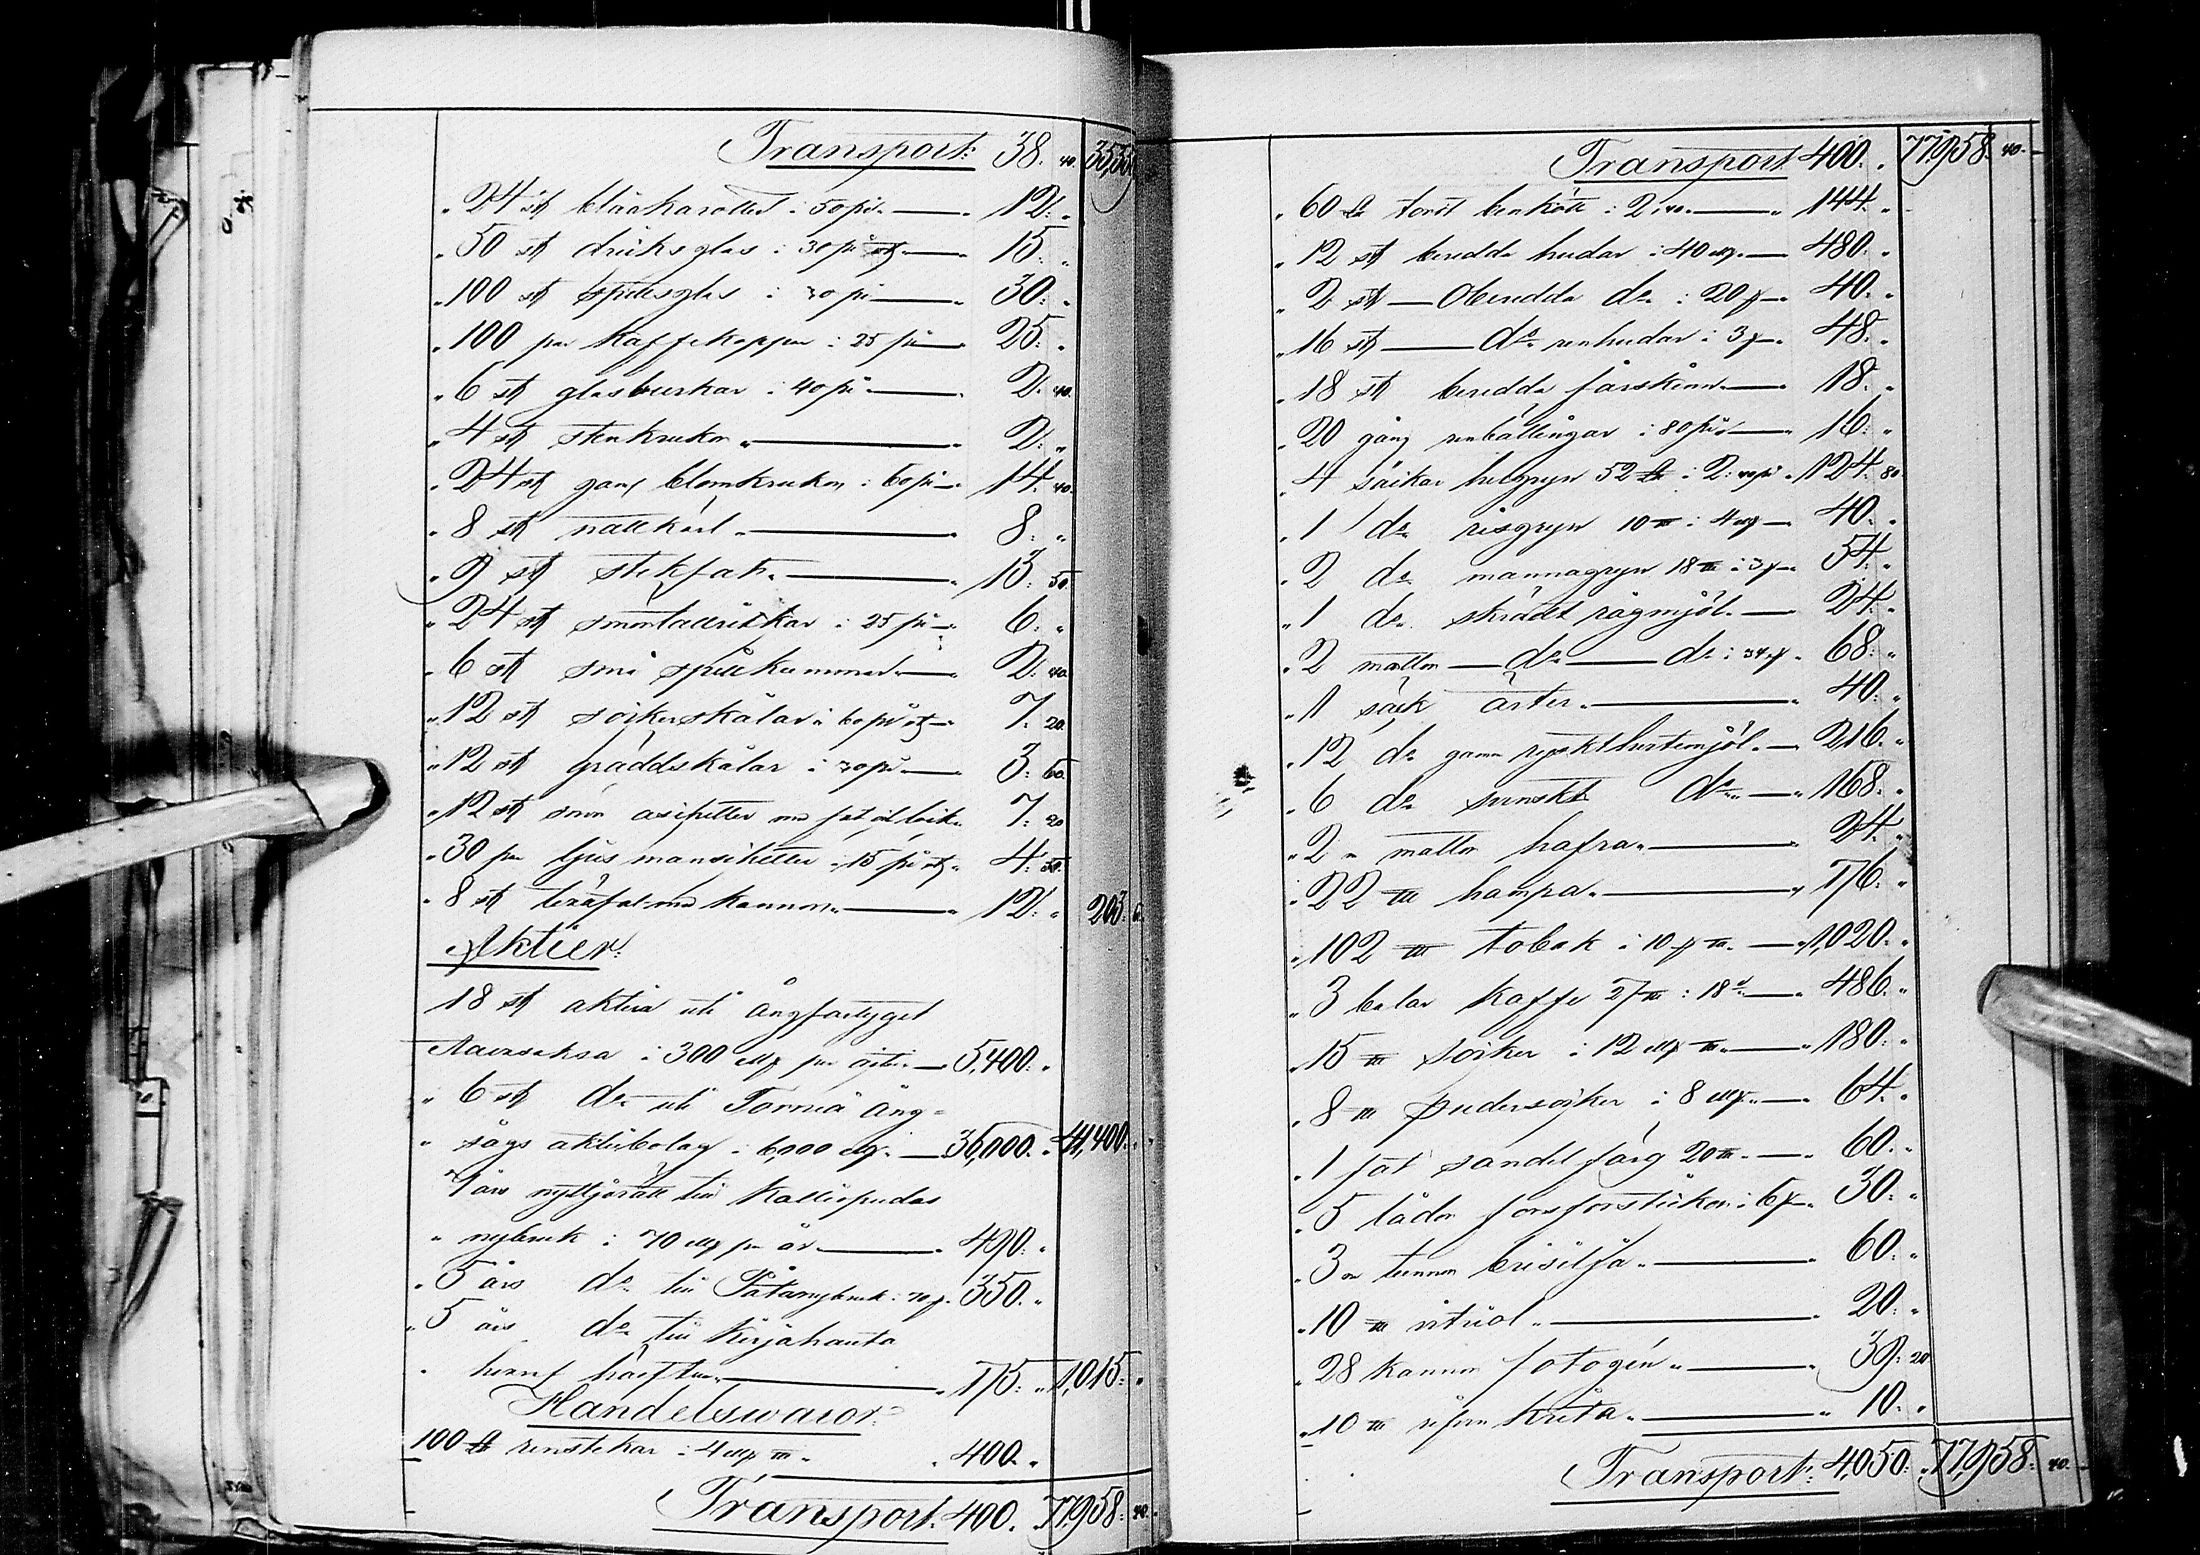 Transport: 38. 40. 35,339
" 24 st blåa karotter i 50 pi. — 12: "
" 50 st driksglas i 30 pi st — 15: "
" 100 st spitsglas i 30 pi — 30: "
" 100 par kaffekoppar i 25 pi — 25: "
" 6 st glasburkar i 40 pi — 2: 40.
" 4 st stenkrukor " — 2: "
" 24 st gang blomkrukor i 60 pi — 14: 40.
" 8 st nattkärl " — 8: "
" 9 st stekfat " — 13: 50.
" 24 st små tallrickar i 25 pi — 6: "
" 6 st små spillkummar " — 2: 40.
" 12 st sockerskålar i 60 pi st — 7: 20.
" 12 st gräddskålar i 30 pi — 3: 60.
" 12 st små asietter med fat 7: 20
" 30 par ljusmanschetter i 15 pi st " 4: 50.
" 8 st med kannor " — 12: " 203:
Aktier:
18 st aktier uti ångfartyget
i 300 mk per aktie — 5,400: "
" 6 st do uti Torneå Ång-
" sågs aktiebolag i 6,000 mk. — 36,000: " 41,400: "
7 års nyttjorätt till Kalliopudas
" nybruk i 70 mk per år — 490: "
" 5 års do till nybruk i 70 350: "
" 5 års do till
" — 175: " 1,015: "
Handelswaror:
100 ℔ renstekar i 4 mk ℔ " 400: "
Transport: 400. 77,958: 40.
Transport 400: " 77,958: 40.
" 60 ℔ torrt benkött i 2: 40. — 144: "
" 12 st beredda hudar i 40 mk. — 480: "
" 2 st — Oberedda do i 20 — 40: "
" 16 st — do renhudar i 3 — 48: "
" 18 st beredda fårskinn — 18: "
" 20 gång renbällingar i 80 pi — 16: "
" 4 säckar helgryn 52 ℔ i 2: 40 pi " 124: 80.
" 1 do risgryn 10 ℔ i 4 mk — 40: "
" 2 do mannagryn 18 ℔ i 3 — 54: "
" 1 do skrädt rågmjöl — 24: "
" 2 mattor — do — do i 34 " 68: "
" 1 säck ärter " — 40: "
" 12 do gamm ryskt hvetemjöl — 216: "
" 6 do svenskt do — 168: "
" 2 " mattor hafra " — 24: "
" 22 ℔ hampa " — 176: "
" 102 ℔ tobak i 10 ℔ — 1,020: "
" 3 balar kaffe 27 ℔ i 18 — 486: "
" 15 ℔ socker i 12 mk ℔ — 180: "
" 8 ℔ pudersocker i 8 mk — 64: "
" 1 fat sandel färg 20 ℔ — 60: "
" 5 lådor forsforstickor i 6 — 30: "
" 3 " tunnor brisilja " — 60: "
" 10 ℔ vitriol " — 20: "
" 28 kannor fotogén " — 39: 20
" 10 ℔ krita " — 10: "
Transport: 4,050: " 77,958: 40.